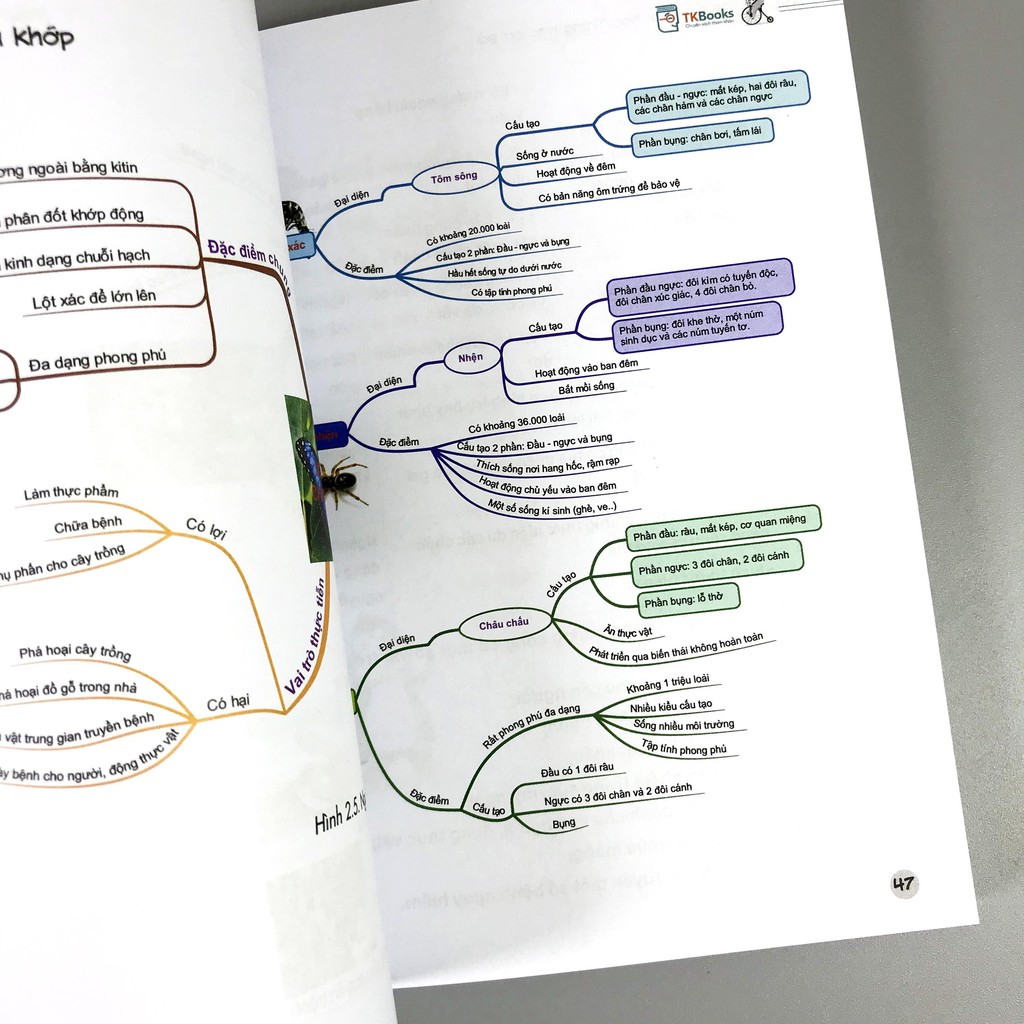 khớp
ngoài bằng kitin
phân đốt khớp động
kinh dạng chuỗi hạch
Lột xác để lớn lên
Đa dạng phong phú
Đặc điểm
Làm thực phẩm
Chữa bệnh
phấn cho cây trồng
Có lợi
Phá hoại cây trồng
hoại đồ gỗ trong nhà
vật trung gian truyền bệnh
bệnh cho người, động thực vật
Có hại
Vai trò thực tiễn
Hình 2.5.
TKBooks
Chuyên sách tham khảo
Đại diện
Tôm sông
Cấu tạo
Phần đầu - ngực: mắt kép, hai đôi râu,
các chân hàm và các chân ngực
Phần bụng: chân bơi, tấm lái
Sống ở nước
Hoạt động về đêm
Có bản năng ôm trứng để bảo vệ
Đặc điểm
Có khoảng 20.000 loài
Cấu tạo 2 phần: Đầu - ngực và bụng
Hầu hết sống tự do dưới nước
Có tập tính phong phú
xác
Đại diện
Nhện
Cấu tạo
Phần đầu ngực: đôi kìm có tuyến độc,
đôi chân xúc giác, 4 đôi chân bò.
Phần bụng: đôi khe thở, một núm
sinh dục và các núm tuyến tơ.
Hoạt động vào ban đêm
Bắt mồi sống
Đặc điểm
Có khoảng 36.000 loài
Cấu tạo 2 phần: Đầu - ngực và bụng
Thích sống nơi hang hốc, rậm rạp
Hoạt động chủ yếu vào ban đêm
Một số sống kí sinh (ghẻ, ve..)
Đại diện
Châu chấu
Cấu tạo
Phần đầu: râu, mắt kép, cơ quan miệng
Phần ngực: 3 đôi chân, 2 đôi cánh
Phần bụng: lỗ thở
Ăn thực vật
Phát triển qua biến thái không hoàn toàn
Đặc điểm
Rất phong phú đa dạng
Khoảng 1 triệu loài
Nhiều kiểu cấu tạo
Sống nhiều môi trường
Tập tính phong phú
Cấu tạo
Đầu có 1 đôi râu
Ngực có 3 đôi chân và 2 đôi cánh
Bụng
47